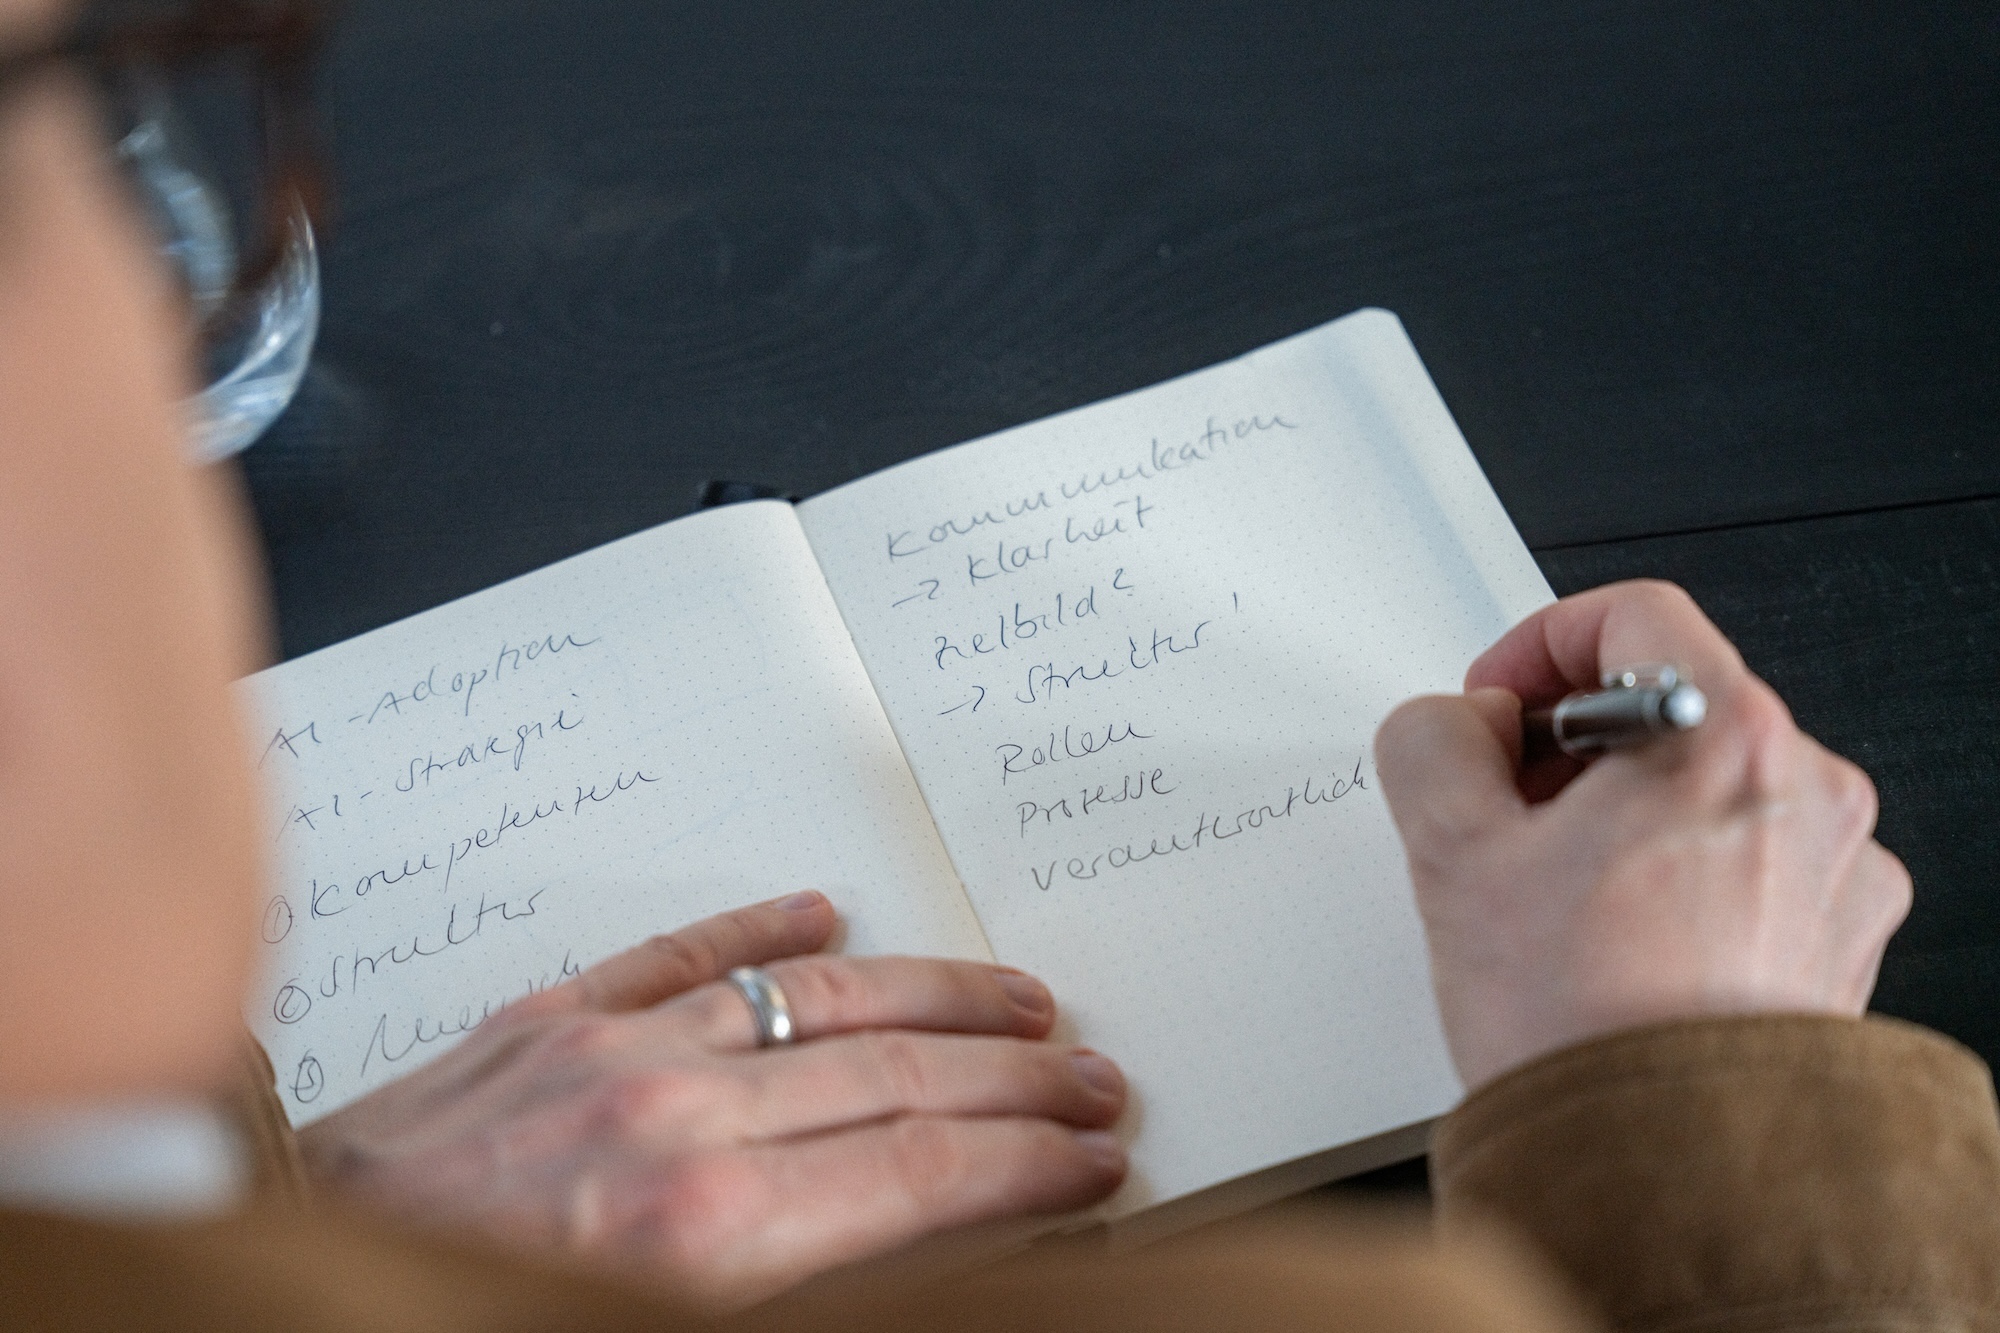 AI-Adoption
AI-Strategie
① Kompetenzen
② Struktur
③ Mensch
Kommunikation
→ Klarheit
Zielbild?
→ Struktur!
Rollen
Prozesse
Verantwortlich